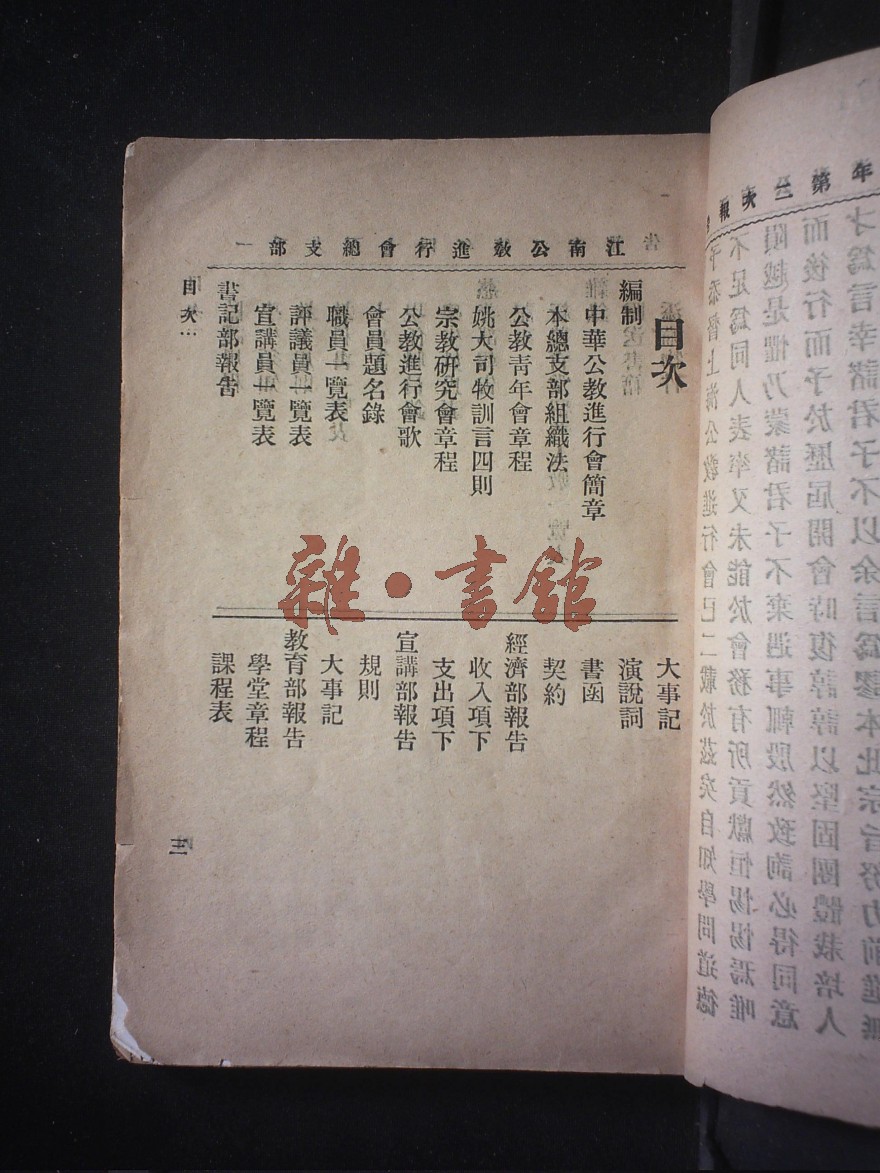 江南公教進行會總支部一
目次
編制
中華公教進行會簡章
本總支部組織法
公教青年會章程
姚大司牧訓言四則
宗教研究會章程
公教進行會歌
會員題名錄
職員一覽表
評議員一覽表
宣講員一覽表
書記部報告
大事記
演說詞
書函
契約
經濟部報告
收入項下
支出項下
宣講部報告
規則
大事記
教育部報告
學堂章程
課程表
目次…
三
雜·書館
年第二次報
予忝督上海公教進行會已二載於茲矣自知學問道德
不足為同人表率又未能於會務有所貢獻恒惕惕焉唯
隕越是懼乃蒙諸君子不棄遇事輒殷然致詢必得同意
而後行而予於歷屆開會時復諄諄以堅固團體栽培人
才為言幸諸君子不以余言為謬本此宗旨努力前進無